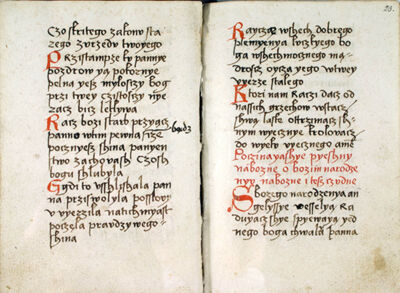 Czo skritego zakow sta
rego zvrzedv twoyego
Przistampże ty pannye
pozdrow ya pokornye
pelna yesz myloszy bog
przi twey czistoszy nye
racz bicz lektiwa
Racz bozi starb przyącz
panno w tim pewna sze bądz
poczynesz shina panyen
stwo zachovash czosh
bogu shlubyla
Gdi to vsshlishala pan
na przizwolyla posslow
v vyerzila natichmyast
poczela prawdzywego
shina
23.
wshech dobrego
plemyenya bo
ga wshechmocznego mą
droscz oycza yego w twey
vyerze stalego
Ktori nam Raczi dacz od
nassich grzechow wstacz
shwą laskę ottrzimacz sh
nym wyecznye krolowacz
do wyekv wyecznego
Poczinayą shye pyeshny
nabozne o bozim narodze
nyv nabozne i tesz czudne
Szbozego narodzenya an
gelyssye vesselya Ra
duyacz shye spyewaya yed
nego boga chwala panna